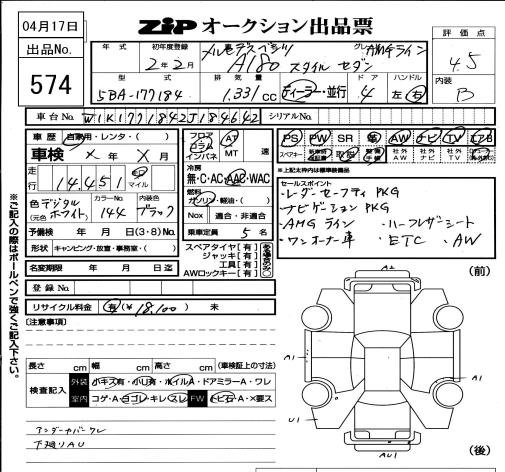 04月17日
ZIP オークション出品票
評価点
4.5
出品No.
574
年式 初年度登録 車名 グレード
2年2月 メルセデスベンツ AMGライン
A180 スタイル セダン
内装
B
型式 排気量 ドア ハンドル
5BA-177184 1.331cc ディーラー・並行 4 左・右
車台No. W1K1771842J184642 シリアルNo.
車歴 自家用・レンタ・( )
車検 × 年 × 月
走行 14,451 km マイル
色 デジタルホワイト (元色) カラーNo. 144 内装色 ブラック
予備検 年 月 日(3・8)No.
形状 キャンピング・放宣・事務室・( )
名変期限 年 月 日迄
登録No.
リサイクル料金 有(¥18,100) 未
フロア コラム インパネ AT MT 速
冷房 無・C・AC・AAC・WAC
燃料 ガソリン・軽油・( )
Nox 適合・非適合
乗車定員 5 名
スペアタイヤ[有]
ジャッキ[有]
工具[有]
AWロックキー[有]
PS PW SR 革 AW ナビ TV エアB
スペアキー 取説 社外AW 社外ナビ 社外TV
*上記太枠内は標準装備品
セールスポイント
・レーダーセーフティPKG
・ナビゲーションPKG
・AMGライン ・ハーフレザーシート
・ワンオーナー車 ・ETC ・AW
(注意事項)
長さ cm 幅 cm 高さ cm (車検証上の寸法)
検査記入 外装 小キズ有・小U有・ホイルA・ドアミラーA・ワレ
室内 コゲ・A・ヨゴレ・キレ・スレ FW トビ石・A・×要ス
アンダーカバーワレ
下廻りAU
※ご記入の際はボールペンで強くご記入下さい。
(前)
A1
A1
A1
U1
AU1
(後)